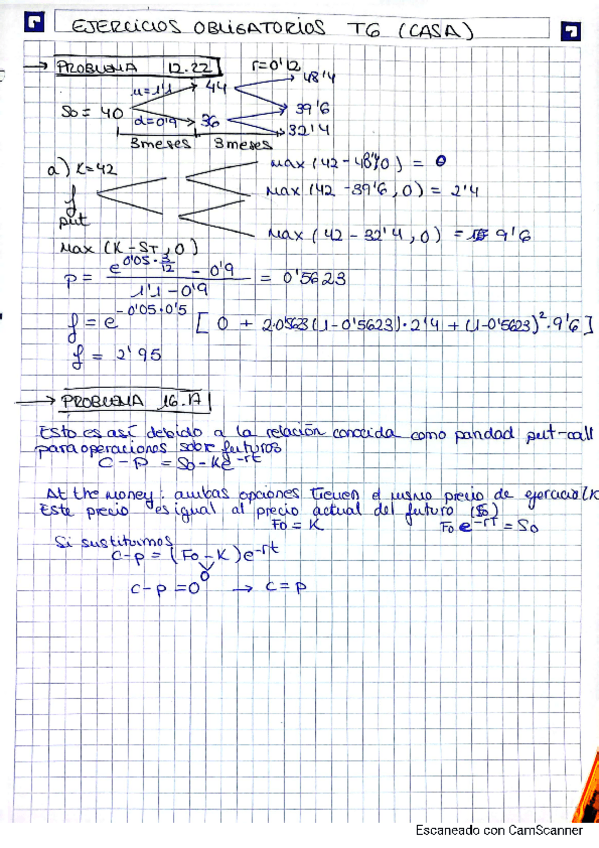 EJERCICIOS OBLIGATORIOS T6 (CASA)
→ PROBLEMA 12.22 r=0'12
S0 = 40 u=1'1 44 48'4
d=0'9 36 39'6
32'4
3 meses 3 meses
a) K=42 max (42-48'4,0) = 0
f put max (42-39'6,0) = 2'4
max (42-32'4,0) = 9'6
Max (K-ST,0)
p = e^0'05·3/12 - 0'9 / 1'1-0'9 = 0'5623
f = e^-0'05·0'5 [0 + 2·0'5623(1-0'5623)·2'4 + (1-0'5623)²·9'6]
f = 2'95
→ PROBLEMA 16.17
Esto es así debido a la relación conocida como paridad put-call
para operaciones sobre futuros
C - P = S0 - Ke^-rt
At the money: ambas opciones tienen el mismo precio de ejercicio (K
Este precio es igual al precio actual del futuro (F0)
F0 = K F0 e^-rt = S0
Si sustituimos
C-p = (F0-K)e^-rt
0
C-p = 0 → C=p
Escaneado con CamScanner